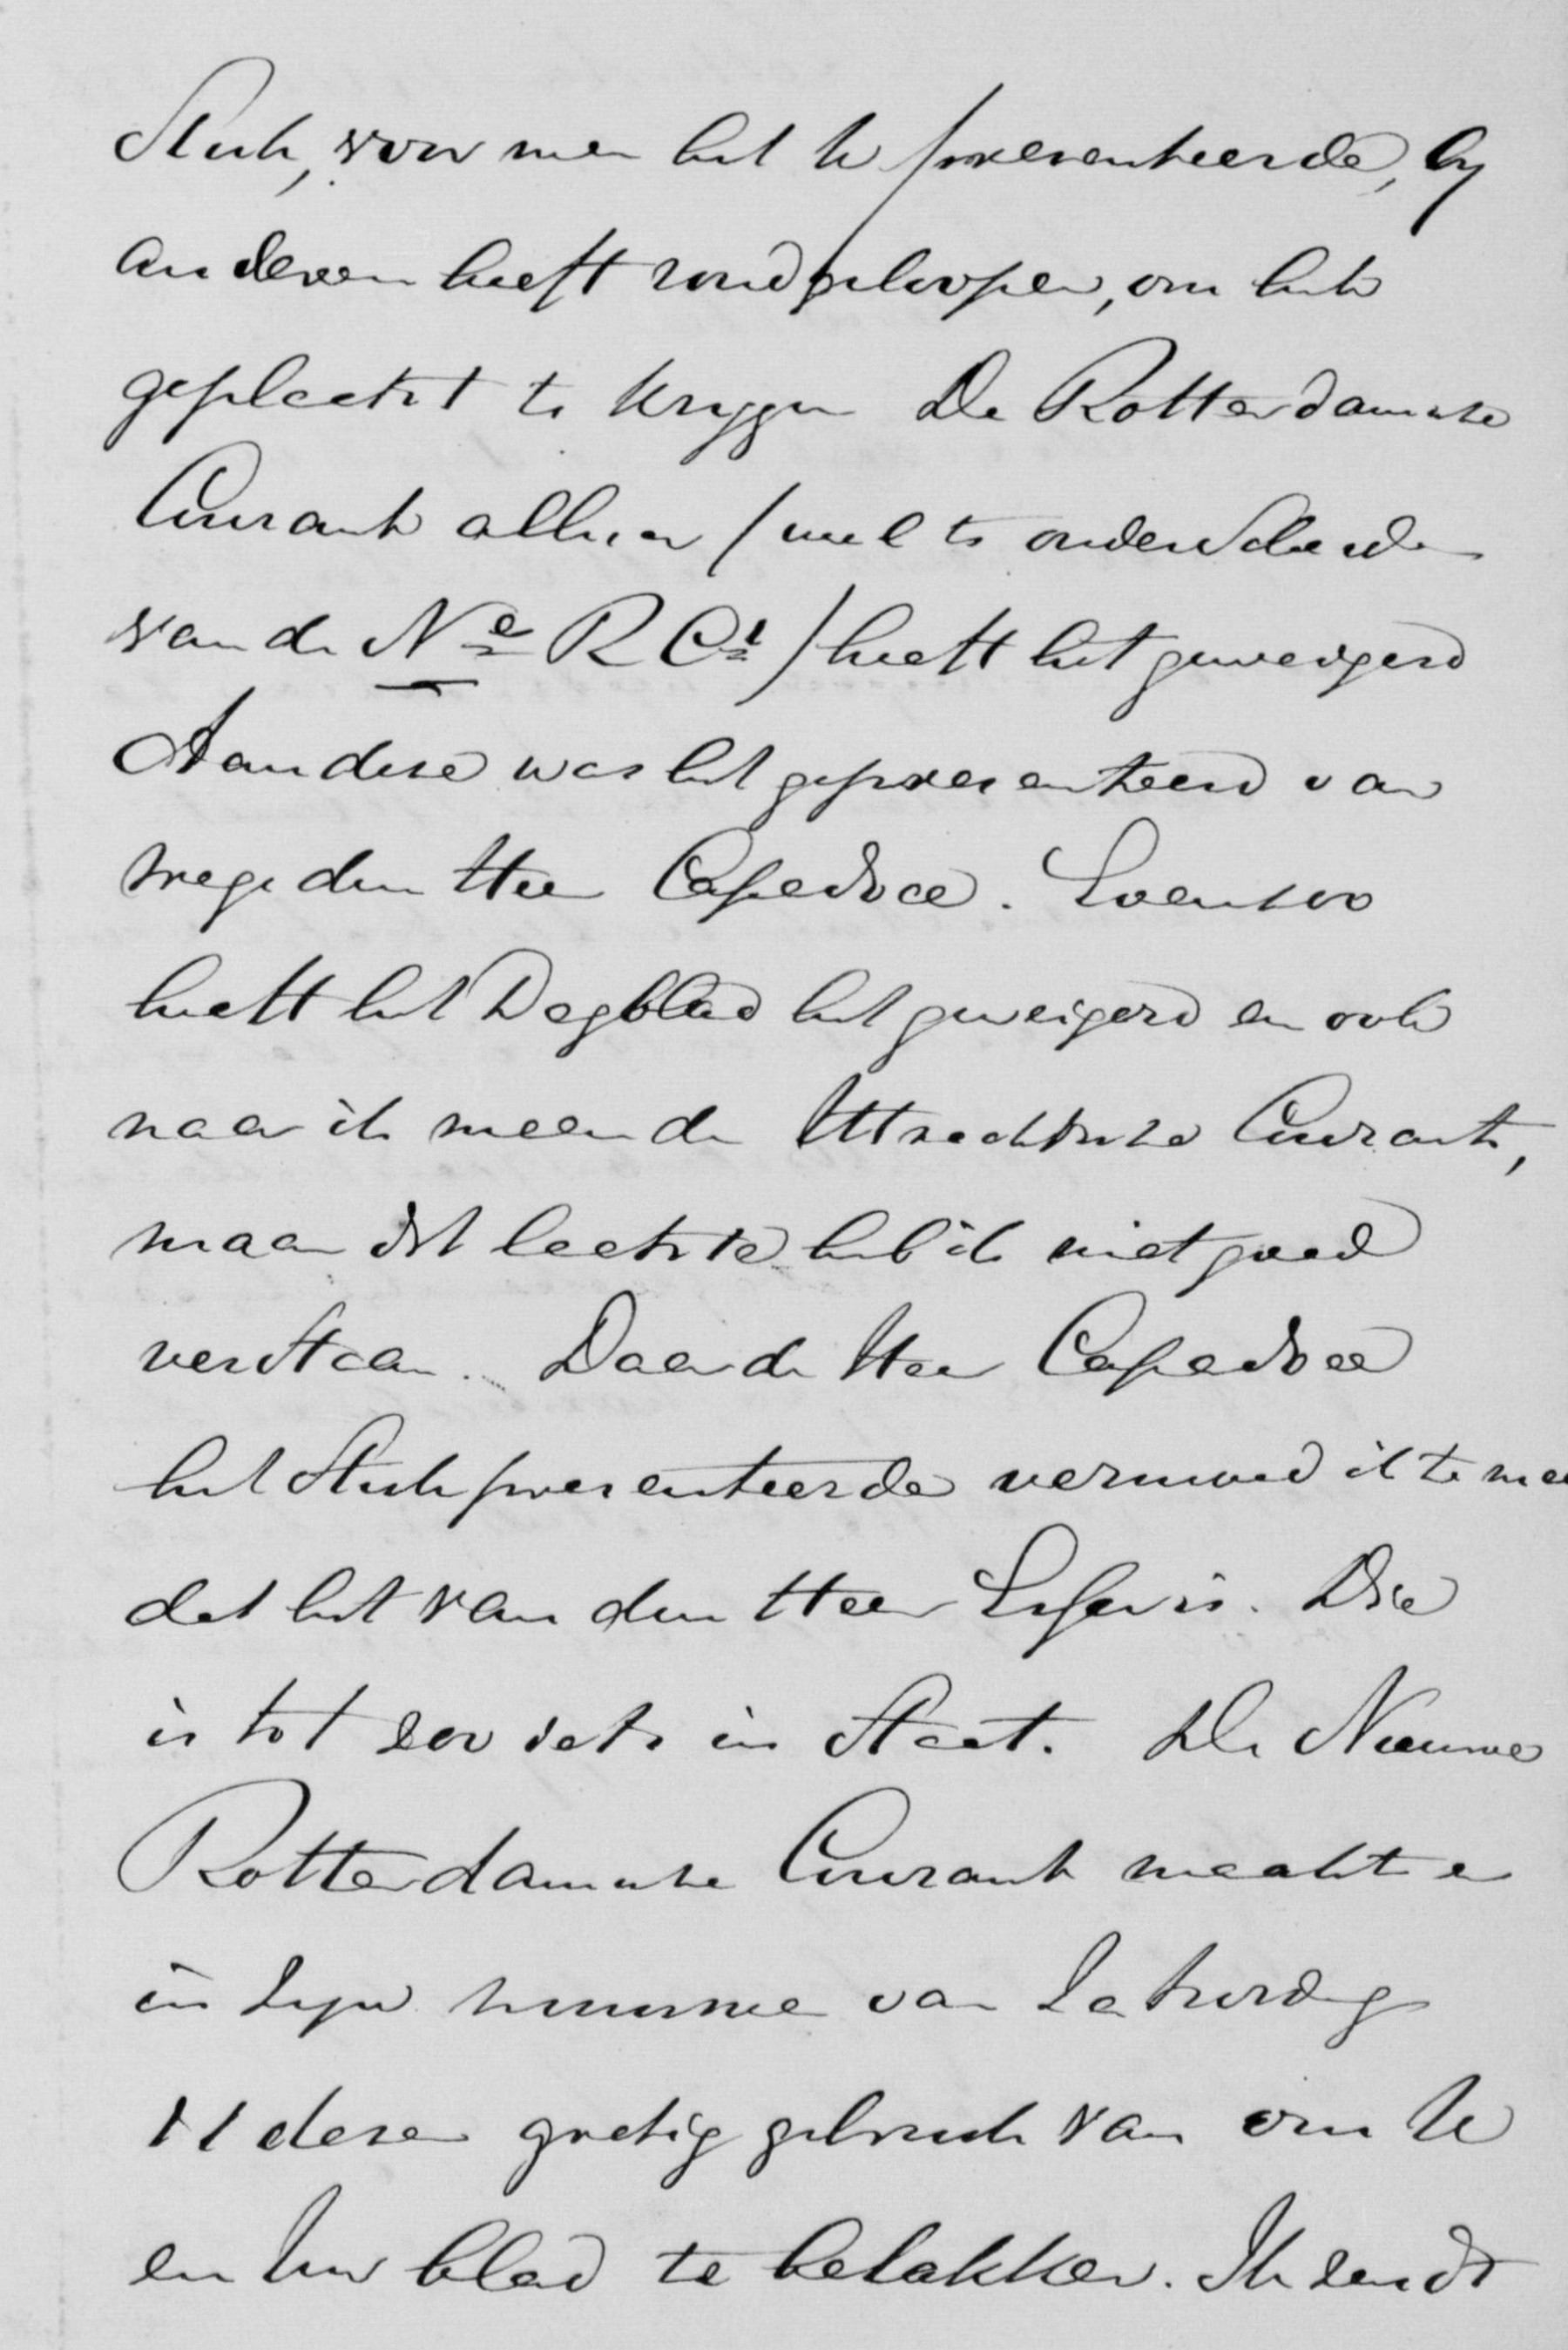 Stuk, voor men het U presenteerde, by
anderen heeft rondgeloopen, om het
geplaatst te krygen De Rotterdamsche
Courant alhier / wel te onderscheiden
van de Ne R Ct / heeft het geweigerd
Aan deze was het gepresenteerd van
wege den Heer Capadoce. Evenzoo
heeft het Dagblad het geweigerd en ook
naar ik meen de Utrechtsche Courant,
maar dit laatste heb ik niet goed
verstaan. Daar de Heer Capadoce
het Stuk presenteerde vermoed ik te meer
dat het van den Heer is. Die
is tot zoo iets in Staat. De Nieuwe
Rotterdamsche Courant maakt er
in zyn nummer van Zaturdag
11 dezer gretig gebruik van om U
en Uw blad te bekakken. Ik zendt